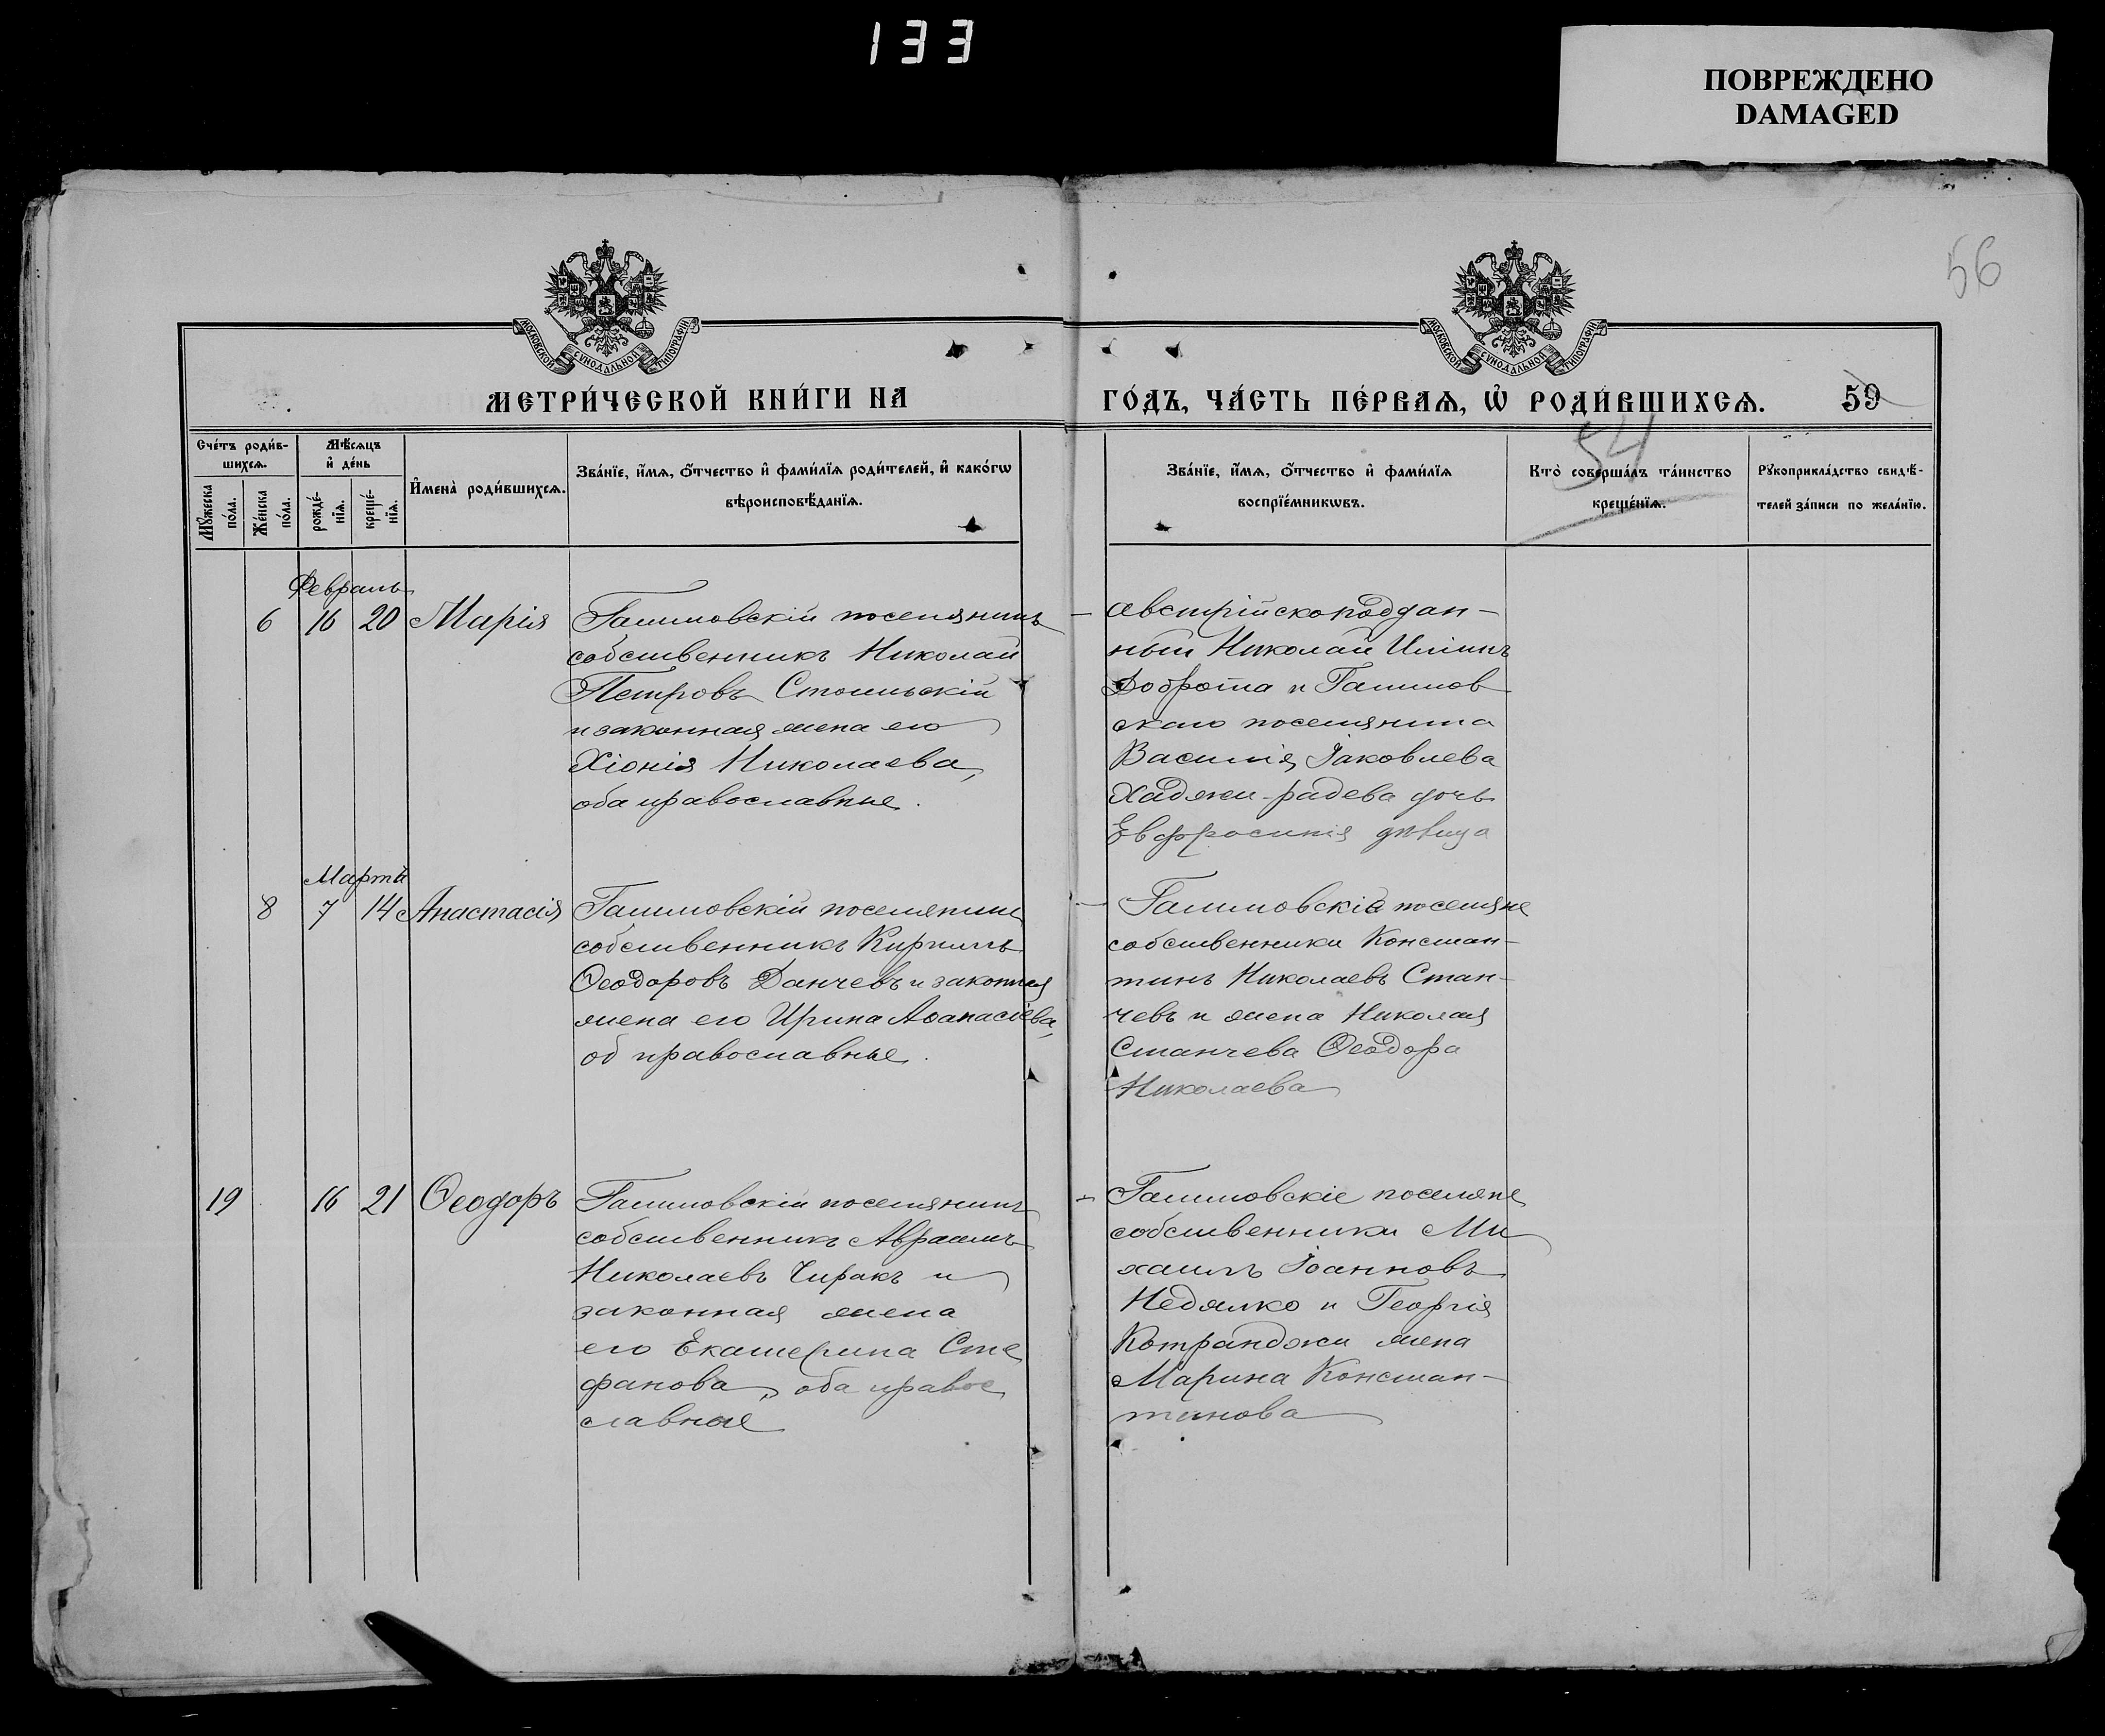 133
ПОВРЕЖДЕНО
DAMAGED
56
МОСКОВСКОЙ СѴНОДАЛЬНОЙ ТИПОГРАФІИ
МОСКОВСКОЙ СѴНОДАЛЬНОЙ ТИПОГРАФІИ
МЕТРИ́ЧЕСКОЙ КНИ́ГИ НА
ГО́ДЪ, ЧА́СТЬ ПЕ́РВАѦ, Ѡ҆ РОДИ́ВШИХСѦ. 59
54
Сче́тъ роди́в-
шихсѧ.
Мꙋ́жеска по́ла.
Же́нска по́ла.
Мѣ́сѧцъ
и҆ де́нь
рожде́-нїѧ.
креще́-нїѧ.
И҆мена̀ роди́вшихсѧ.
Зва́нїе, и҆́мѧ, ѻ҆́тчество и҆ фами́лїѧ роди́телей, и҆ како́гѡ
вѣроисповѣ́данїѧ.
Зва́нїе, и҆́мѧ, ѻ҆́тчество и҆ фами́лїѧ
воспрїе́мникѡвъ.
Кто̀ соверша́лъ та́инство
креще́нїѧ.
Рꙋкоприкла́дство свидѣ́-
телей за́писи по жела́нїю.
Февраль
6 16 20 Марія
Галиловскій поселянинъ
собственникъ Николай
Петровъ Стоильскій
и законная жена его
Хіонія Николаева,
оба православные.
Австрійскоподдан-
ный Николай Илiинъ
Доброта и Галилов
скаго поселянина
Василія Іаковлева
Хаджи-радева дочь
Евфросинія дѣвица
Мартъ
8 7 14 Анастасія
Галиловскій поселянинъ
собственникъ Кириллъ
Ѳеодоровъ Данчевъ и законная
жена его Ирина Аѳанасіева,
об православные.
Галиловскіе поселяне
собственники Констан-
тинъ Николаевъ Стан-
чевъ и жена Николая
Станчева Ѳеодора
Николаева
19 16 21 Ѳеодоръ
Галиловскій поселянинъ
собственникъ Авраамъ
Николаевъ Чиракъ и
законная жена
его Екатерина Сте
фанова, оба право
славные
Галиловскіе поселяне
собственники Ми
хаилъ Іоанновъ
Недялко и Георгія
Котранджи жена
Марина Констан-
тинова